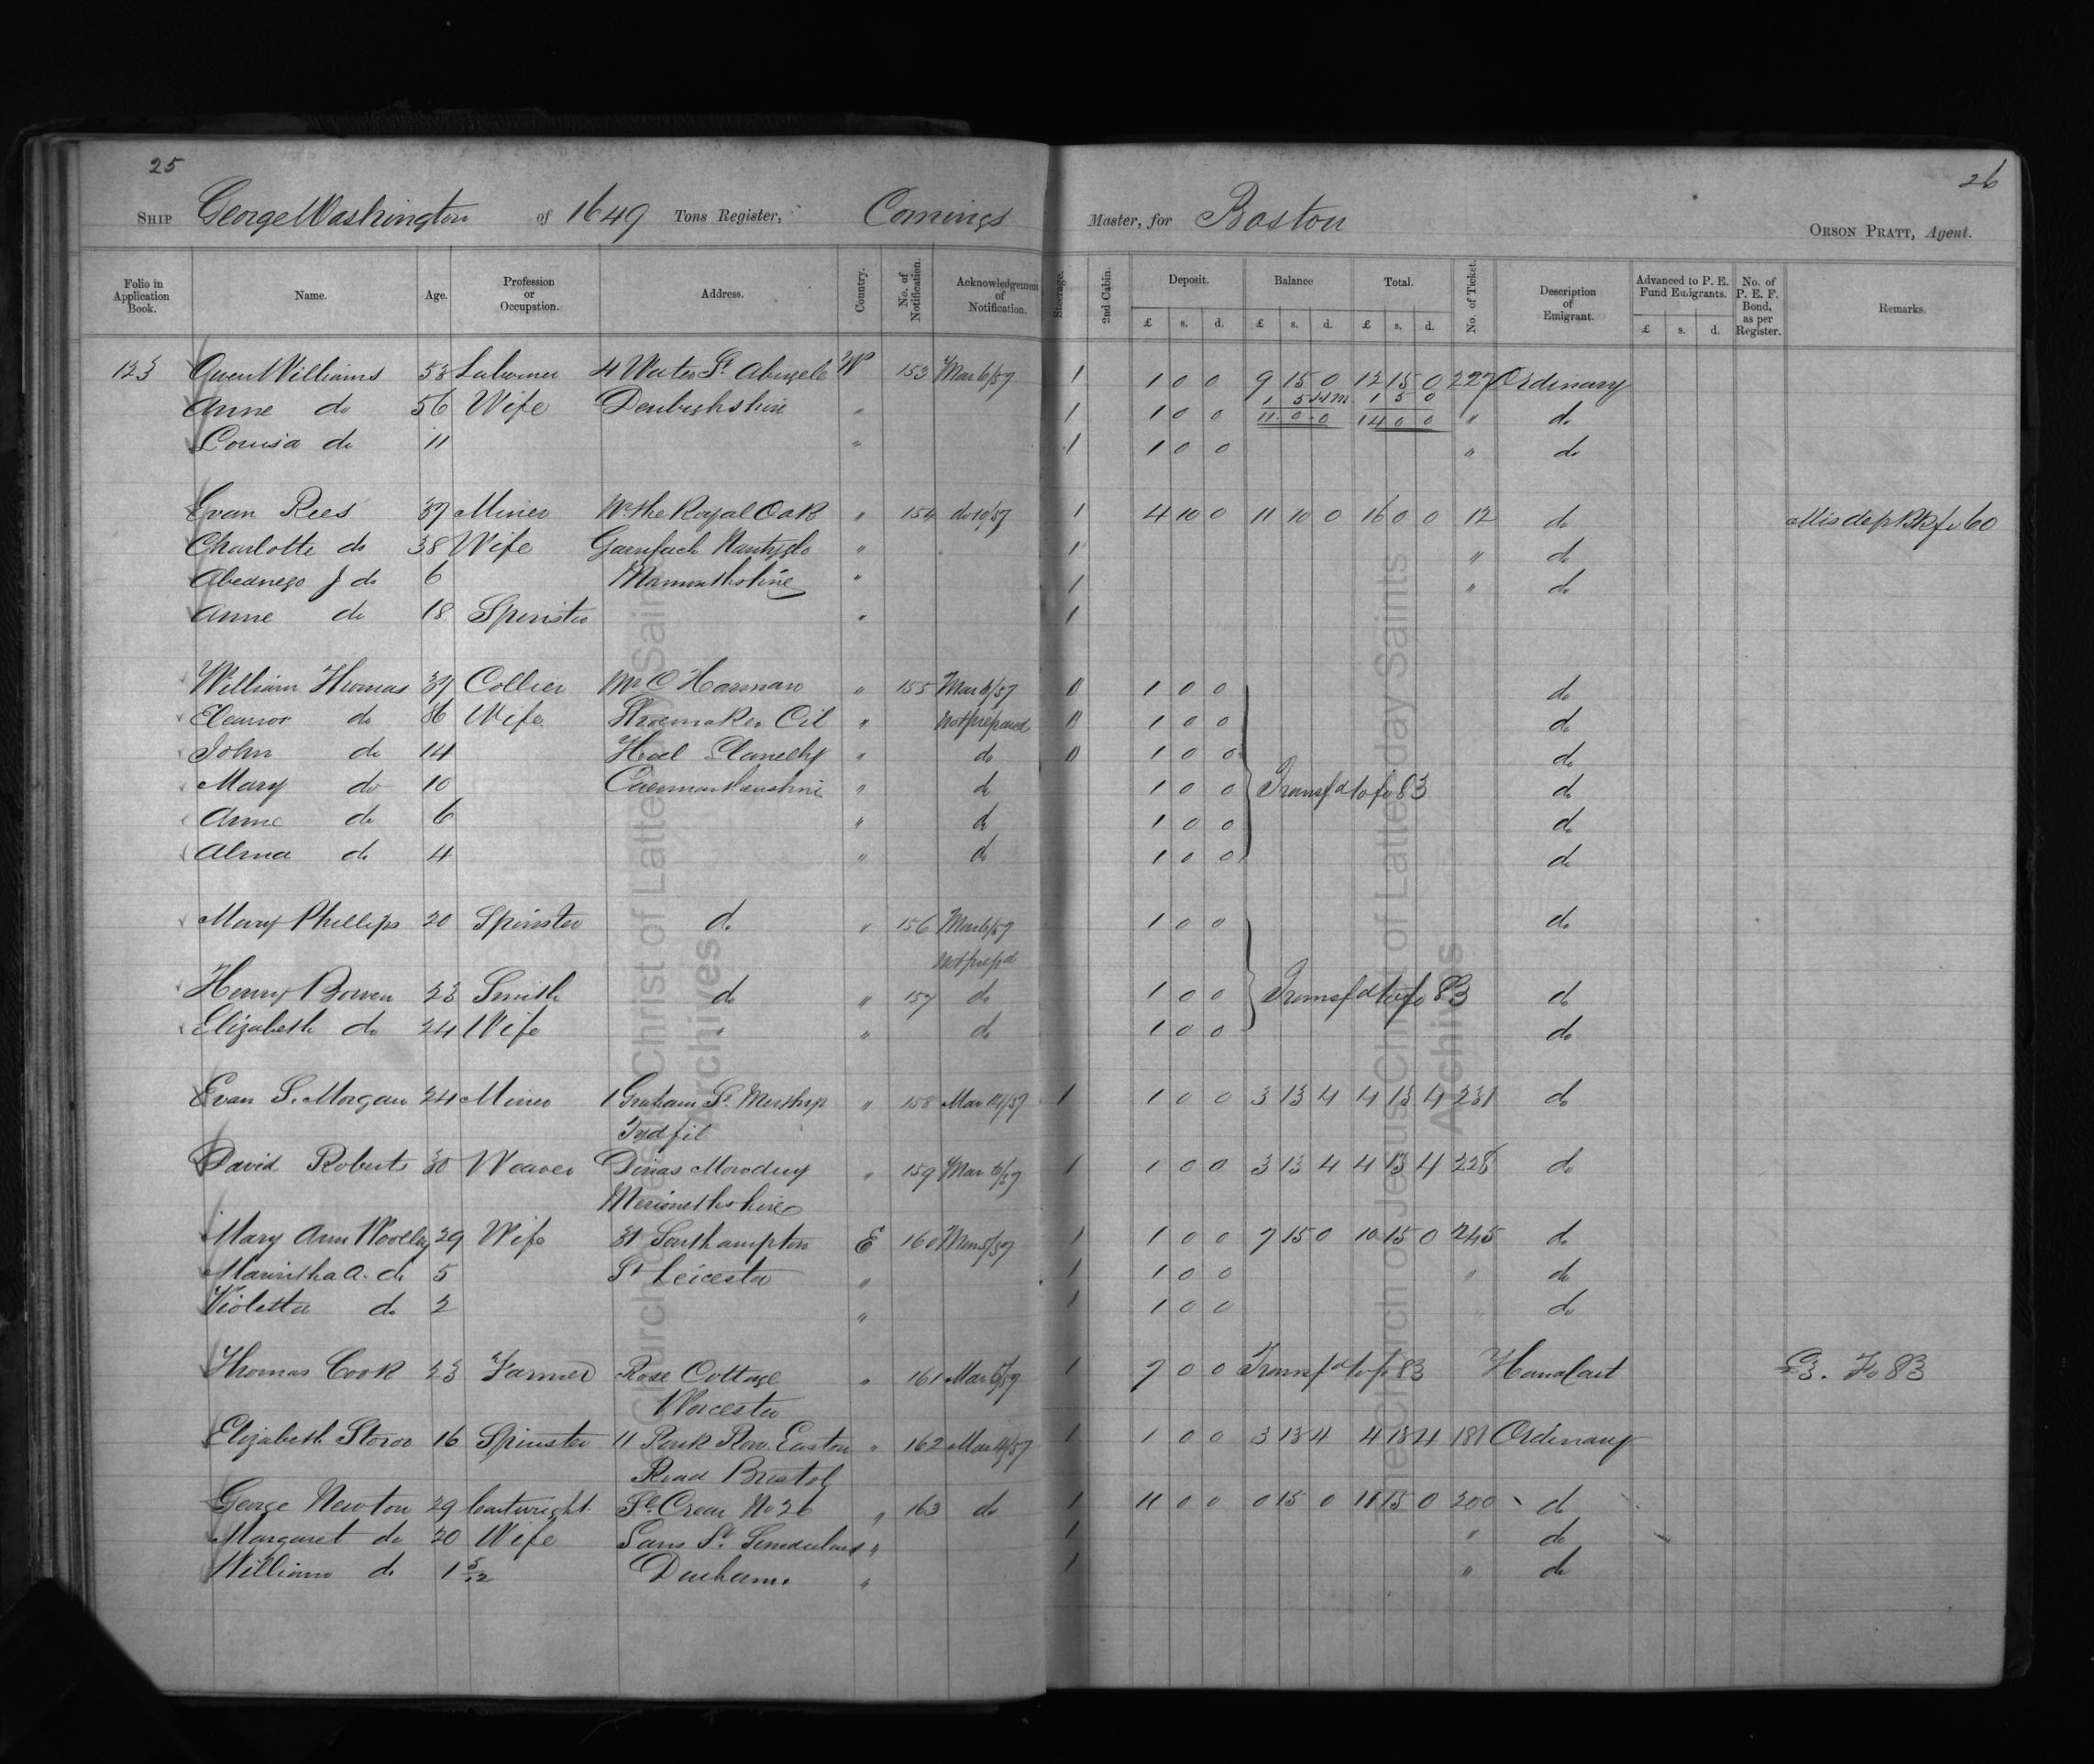 25
26
SHIP George Washington of 1649 Tons Register, Comings Master, for Boston
ORSON PRATT, Agent.
Folio in Application Book. Name. Age. Profession or Occupation. Address. Country. No. of Notification. Acknowledgement of Notification. Steerage. 2nd Cabin. Deposit. Balance Total. No. of Ticket. Description of Emigrant. Advanced to P. E. Fund Emigrants. No. of P. E. F. Bond, as per Register. Remarks.
£ s. d. £ s. d. £ s. d. £ s. d.
123 Owen Williams 53 Laborer 4 Water St. Abergele W 153 Mar 6/57 1 1 0 0 9 15 0 12 15 0 227 Ordinary
1 5 1 5 0
Anne do 56 Wife Denbighshire " 1 1 0 0 11 0 0 14 0 0 " do
Louisa do 11 " 1 1 0 0 " do
Evan Rees 37 Miner the Royal Oak " 154 do 10/57 1 4 10 0 11 10 0 16 0 0 12 do Mis dep Bk fo 60
Charlotte do 38 Wife Garnfach Nantyglo " 1 " do
Abednego J do 6 Monmouthshire " 1 " do
Anne do 18 Spinster " 1
William Thomas 37 Collier Mr C Harman " 155 Mar 6/57 1 0 0 do
Eleanor do 36 Wife Shoemaker Cil " Not prepared 1 0 0 do
John do 14 Hoel Llanelly " do 1 0 0 do
Mary do 10 Caermarthenshire " do 1 0 0 Transfd to fo 83 do
Anne do 6 " do 1 0 0 do
Alma do 4 " do 1 0 0 do
Mary Phillips 20 Spinster do " 156 Mar 6/57 1 0 0 do
Not prepd
Henry Bowen 23 Smith do " 157 do 1 0 0 Transfd to fo 83 do
Elizabeth do 24 Wife " " do 1 0 0 do
Evan S. Morgan 24 Miner 1 Graham St. Merthyr " 158 Mar 14/57 1 1 0 0 3 13 4 4 13 4 231 do
Tydfil
David Roberts 30 Weaver Dinas Mowddwy " 159 Mar 6/57 1 1 0 0 3 13 4 4 13 4 228 do
Merionethshire
Mary Ann Woolley 29 Wife 31 Southampton E 160 Mar 5/57 1 1 0 0 7 15 0 10 15 0 245 do
Marintha A. do 5 St Leicester " 1 1 0 0 " do
Violetta do 2 " 1 1 0 0 do
Thomas Cook 23 Farmer Rose Cottage " 161 Mar 5/57 1 7 0 0 Transfd to fo 83 Handcart £3. Fo 83
Worcester
Elizabeth Storor 16 Spinster 11 Park Row Easton " 162 Mar 14/57 1 1 0 0 3 13 4 4 13 4 181 Ordinary
Road Bristol
George Newton 29 Cartwright No 26 " 163 do 1 11 0 0 0 15 0 11 15 0 200 do
Margaret do 20 Wife Sans St. Sunderland " 1 " do
William do 1 5/12 Durham " 1 " do